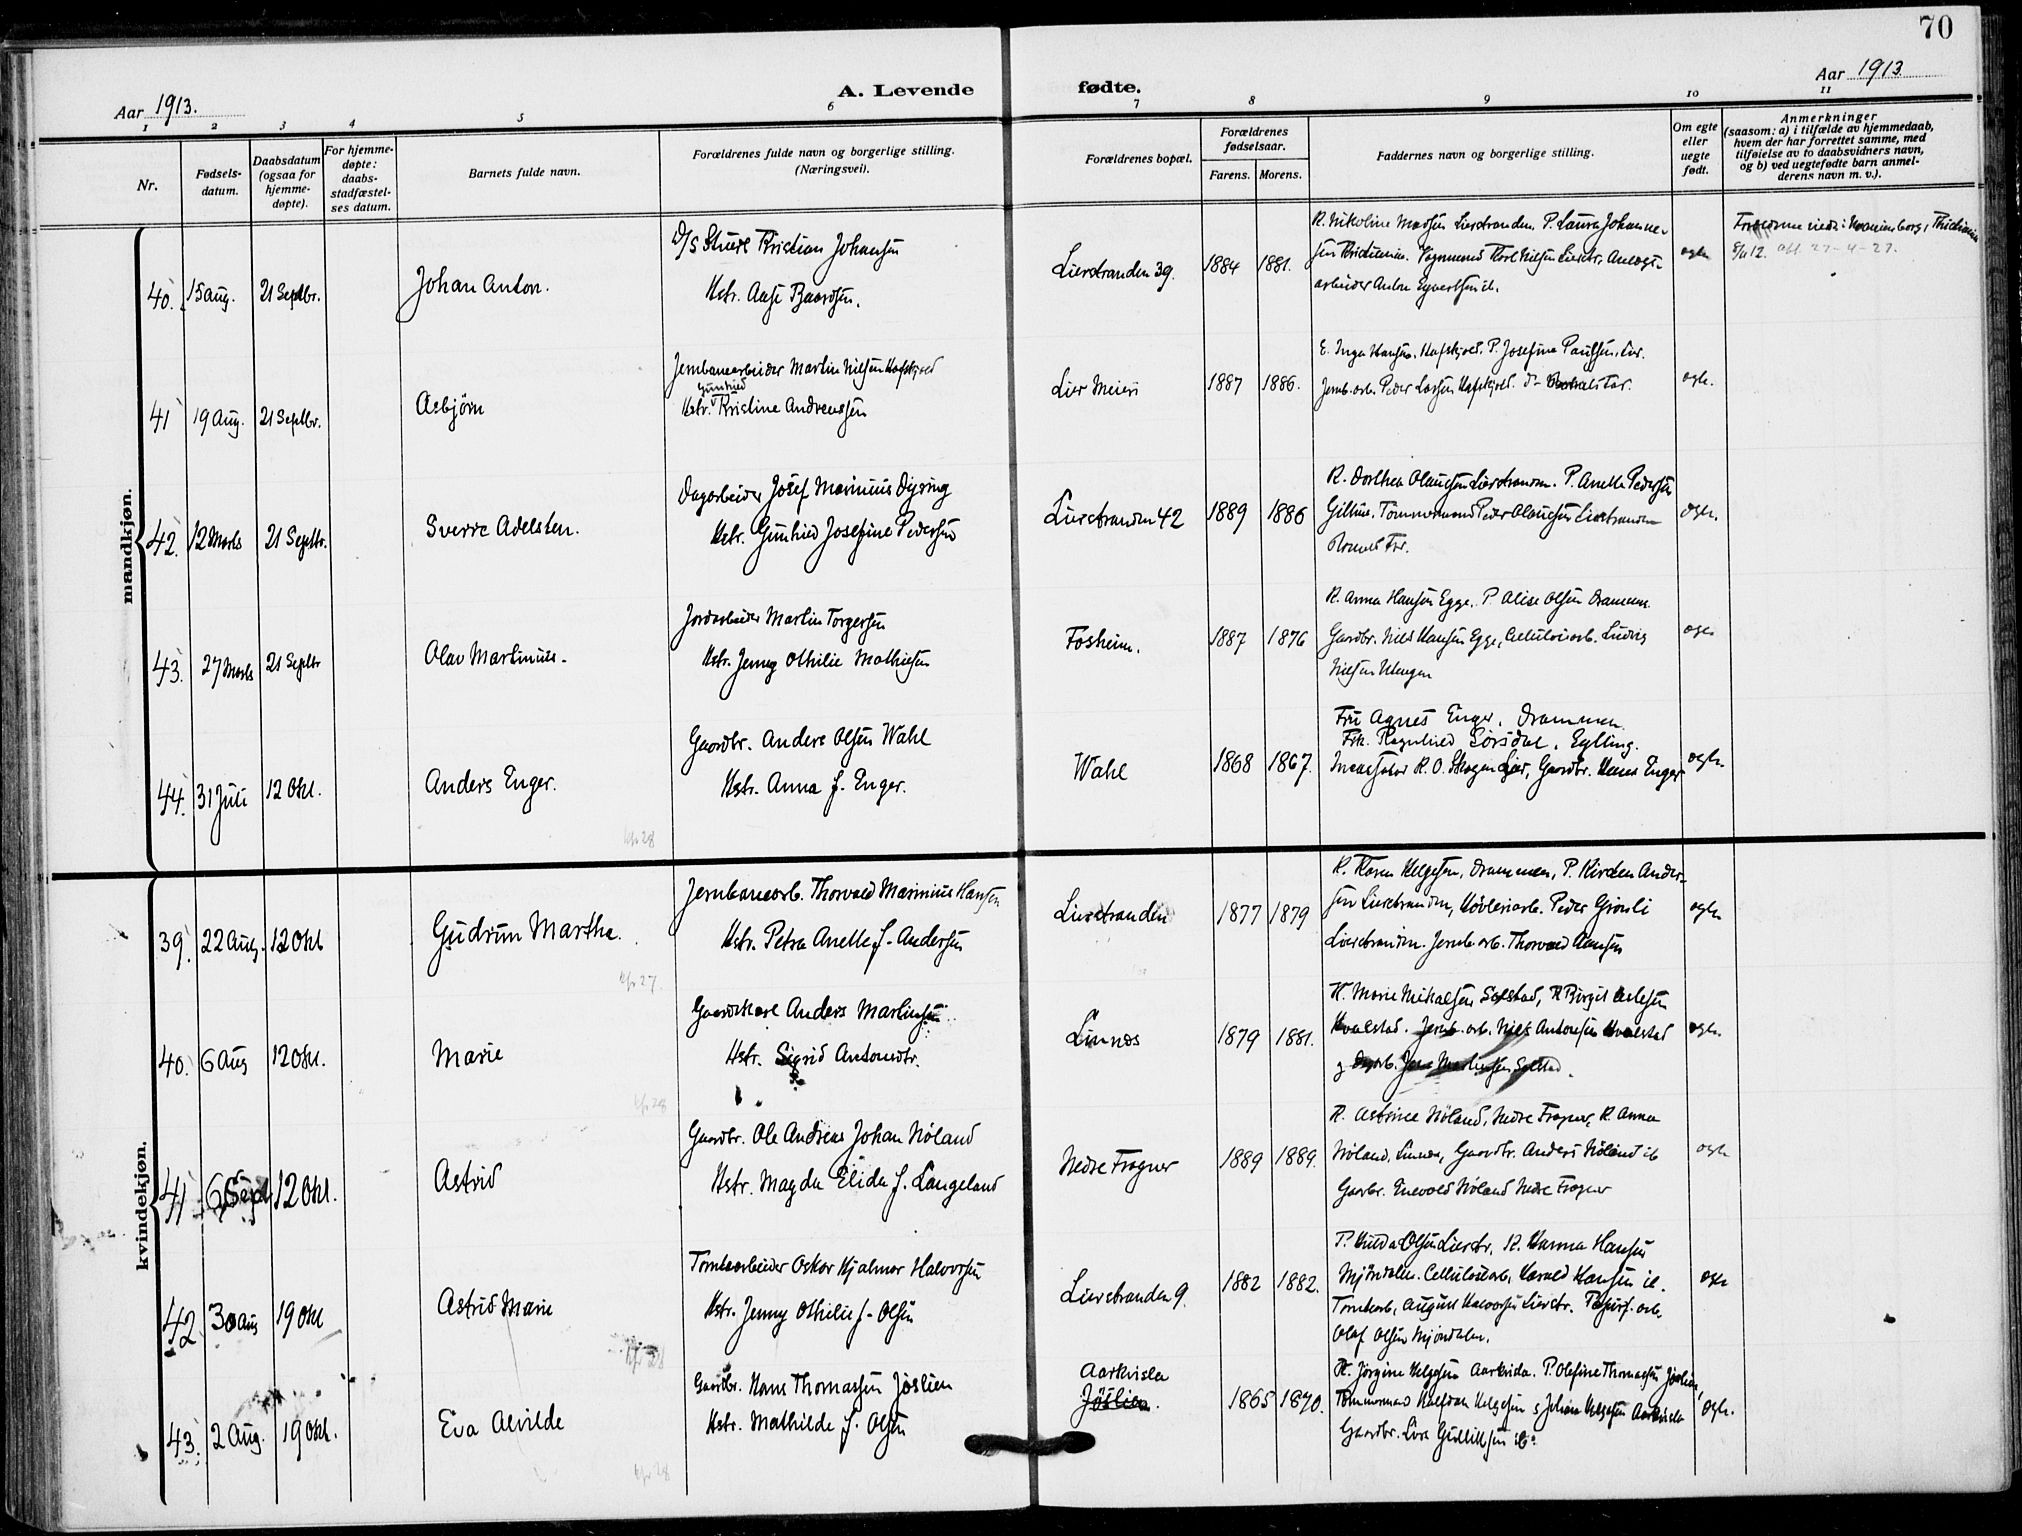 70
Aar 1913.
A. Levende
fødte.
Aar 1913
1 2 3 4 5 6 7 8 9 10 11
Nr.
Fødsels-
datum.
Daabsdatum
(ogsaa for
hjemme-
døpte).
For hjemme-
døpte:
daabs-
stadfæstel-
ses datum.
Barnets fulde navn.
Forældrenes fulde navn og borgerlige stilling.
(Næringsvei).
Forældrenes bopæl.
Forældrenes
fødselsaar.
Farens. Morens.
Faddernes navn og borgerlige stilling.
Om egte
eller
uegte
født.
Anmerkninger
(saasom: a) i tilfælde av hjemmedaab,
hvem der har forrettet samme, med
tilføielse av to daabsvidners navn,
og b) ved uegtefødte barn anmel-
derens navn m. v.).
mandkjøn.
40. 15 Aug. 21 Septbr. Johan Anton.
D/S Stuert Kristian Johansen
Hstr. Aase Baardsen.
Lierstranden 39. 1884 1881.
K. Nikoline Madsen Lierstranden. P. Laura Johanne-
sen Kristiania.
arbeider Anton
egte
8/4 12. att. 27-4-27.
41 19 Aug. 21 Septbr. Asbjørn
Jernbanearbeider Martin Nilsen Hafskjold
Gunhild
Hstr. Kristine Andreassen
Lier Meieri 1887 1886.
E. Inga Hansen, Hafskjold. P. Josefine Paulsen, Lier.
Jernb. arb. Peder Larsen Hafskjold.
egte.
42. 12 Marts 21 Septbr. Sverre Adelsten.
Dagarbeider Josef Marinius Digring
Hstr. Gunhild Josefine Pedersen
Lierstranden 42 1889 1886
K. Dorthea Olausen Lierstranden. P. Anette Pedersen
Gilhus. Tømmermand Peder Olausen Lierstranden
Barnets Far.
egte.
43. 27 Marts 21 Septbr Olav Martinius.
Jordarbeider Martin Torgersen
Hstr. Jenny Othilie Mathisen
Fosheim. 1887 1876
K. Anna Hansen Egge. P. Alise Olsen Drammen.
Gaardbr. Nils Hansen Egge, Cellulosearb. Ludvig
Nilsen
egte
44. 31 Juli 12 Okt. Anders Enger.
Gaardbr. Anders Olsen Wahl
Hstr. Anna f. Enger.
Wahl 1868 1867.
Fru Agnes Enger, Drammen
Frk. Ragnhild Sørsdal, Sylling.
K. O. Skogen Lier, Gaardbr. Hans Enger
egte.
kvindekjøn.
39. 22 Aug. 12 Okt Gudrun Martha.
Jernbanearb. Thorvald Marinius Hansen
Hstr. Petra Anette f. Andersen
Lierstranden 1877 1879
K. Karen Helgesen, Drammen, P. Kirsten Ander-
sen Lierstranden, Høvleriarb. Peder Grønli
Lierstranden. Jernb. arb. Thorvald Hansen
egte
40. 6 Aug 12 Okt. Marie
Gaardskarl Anders Martinsen
Hstr. Sigrid Antonsdtr.
Linnes 1879 1881.
K. Marie Mikalsen Solstad, K Birgit
Hvalstad. Jernb. arb. Nils Antonsen Hvalstad
egte.
41 6 Sept 12 Okt. Astrid
Gaardbr. Ole Andreas Johan Nøland
Hstr. Magda Elida f. Langeland
Nedre Frogner 1889 1889.
Nøland, Nedre Frogner, K. Anna
Nøland, Linnes, Gaardbr. Anders Nøland ib
Gaardbr. Enevold Nøland Nedre Frogner
egte
42 30 Aug 19 Okt Astrid Marie
Tomtearbeider Oskar Hjalmar Halvorsen
Hstr. Jenny Othilie f. Olsen
Lierstranden 9. 1882 1882.
P. Hulda Olsen Lierstr, K. Hanna Hansen
Mjøndalen. Cellulosearb, Harald Hansen ib.
Tomtearb, August Halvorsen Lierstr. Papirf. arb.
Olaf Olsen Mjøndalen.
egte
43. 2 Aug. 19 Okt. Eva Alvilde
Gaardbr. Hans Thomassen Jøslien
Hstr. Mathilde f. Olsen
Aarkvisla
Jøslien. 1865 1870.
K. Jørgine Helgesen Aarkvisla. P. Olefine Thomassen Jøslien,
Tømmermand Halfdan Helgesen & Johan Helgesen Aarkvisla
Gaardbr. Gulliksen ib.
egte.